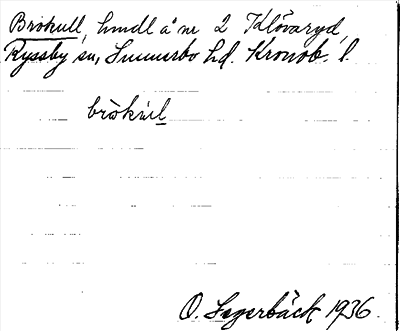 Brökull, hmdl å nr 2 Klövaryd,
Ryssby sn, Sunnerbo hd. Kronob. l.
brökúl
O. Sagerbäck 1936.